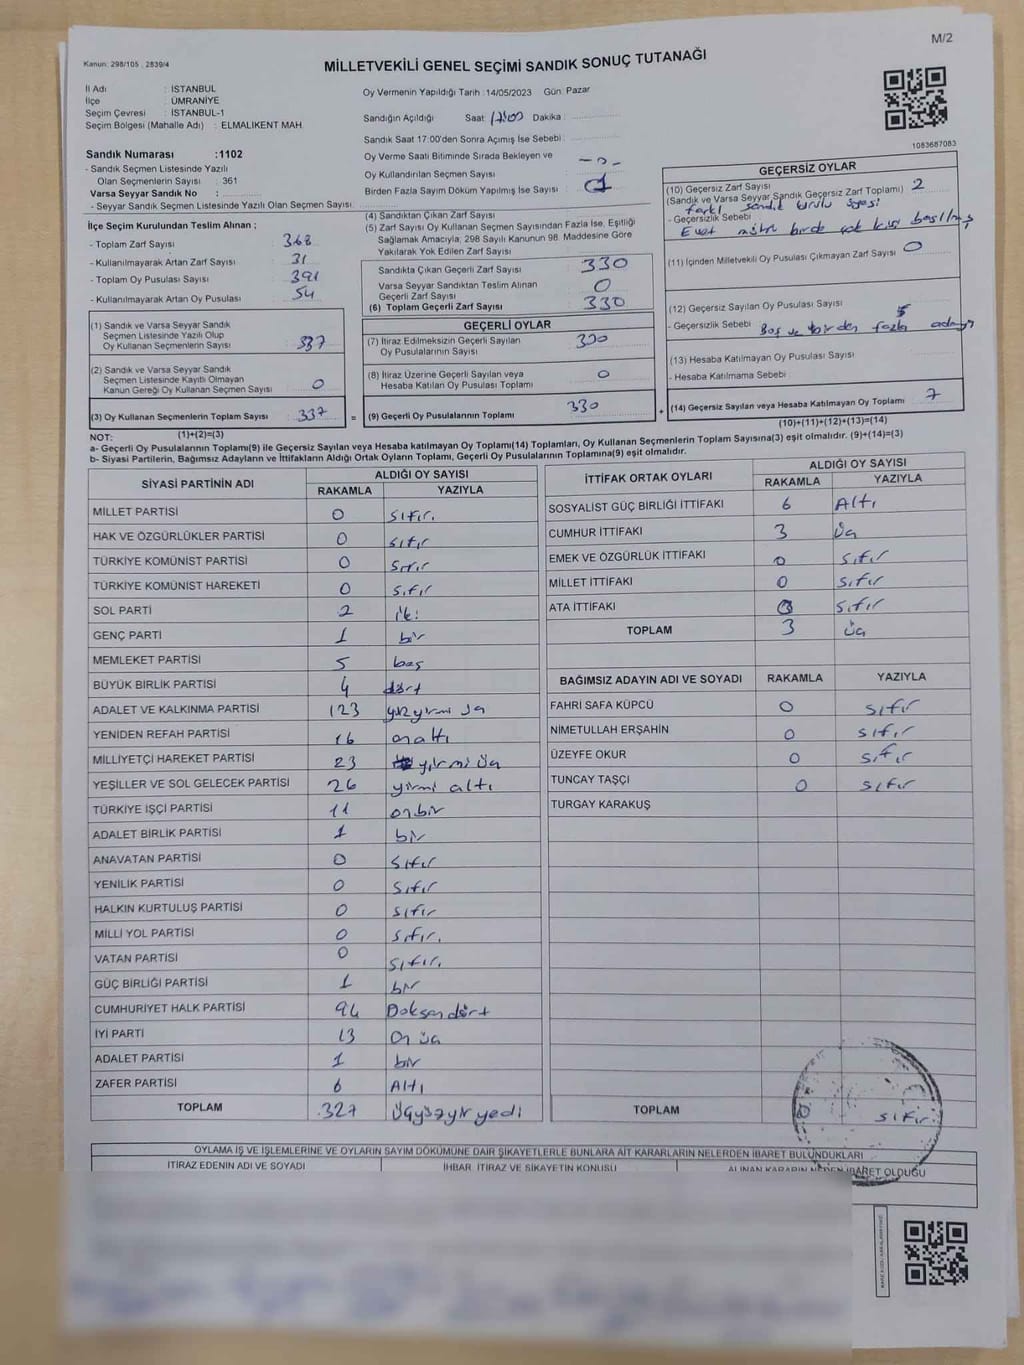 M/2
Kanun: 298/105 , 2839/4
MİLLETVEKİLİ GENEL SEÇİMİ SANDIK SONUÇ TUTANAĞI
İl Adı : İSTANBUL
İlçe : ÜMRANİYE
Seçim Çevresi : İSTANBUL-1
Seçim Bölgesi (Mahalle Adı) : ELMALIKENT MAH.
Sandık Numarası :1102
- Sandık Seçmen Listesinde Yazılı
Olan Seçmenlerin Sayısı : 361
Varsa Seyyar Sandık No :
- Seyyar Sandık Seçmen Listesinde Yazılı Olan Seçmen Sayısı:
İlçe Seçim Kurulundan Teslim Alınan ;
- Toplam Zarf Sayısı : 368
- Kullanılmayarak Artan Zarf Sayısı : 31
- Toplam Oy Pusulası Sayısı : 391
- Kullanılmayarak Artan Oy Pusulası : 54
(1) Sandık ve Varsa Seyyar Sandık
Seçmen Listesinde Yazılı Olup
Oy Kullanan Seçmenlerin Sayısı : 337
(2) Sandık ve Varsa Seyyar Sandık
Seçmen Listesinde Kayıtlı Olmayan
Kanun Gereği Oy Kullanan Seçmen Sayısı : 0
(3) Oy Kullanan Seçmenlerin Toplam Sayısı : 337 =
(1)+(2)=(3)
Oy Vermenin Yapıldığı Tarih :14/05/2023 Gün: Pazar
Sandığın Açıldığı Saat: 17:00 Dakika :
Sandık Saat 17:00'den Sonra Açımış İse Sebebi :
Oy Verme Saati Bitiminde Sırada Bekleyen ve
Oy Kullandırılan Seçmen Sayısı :
Birden Fazla Sayım Döküm Yapılmış İse Sayısı :
(4) Sandıktan Çıkan Zarf Sayısı :
(5) Zarf Sayısı Oy Kullanan Seçmen Sayısından Fazla İse, Eşitliği
Sağlamak Amacıyla, 298 Sayılı Kanunun 98. Maddesine Göre
Yakılarak Yok Edilen Zarf Sayısı :
Sandıkta Çıkan Geçerli Zarf Sayısı : 330
Varsa Seyyar Sandıktan Teslim Alınan
Geçerli Zarf Sayısı : 0
(6) Toplam Geçerli Zarf Sayısı : 330
GEÇERLİ OYLAR
(7) İtiraz Edilmeksizin Geçerli Sayılan
Oy Pusulalarının Sayısı : 330
(8) İtiraz Üzerine Geçerli Sayılan veya
Hesaba Katılan Oy Pusulası Toplamı : 0
(9) Geçerli Oy Pusulalarının Toplamı : 330 +
1083687083
GEÇERSİZ OYLAR
(10) Geçersiz Zarf Sayısı : 2
(Sandık ve Varsa Seyyar Sandık Geçersiz Zarf Toplamı)
farklı sandık kurulu
- Geçersizlik Sebebi :
Evet mührü birden çok kişi basılmış
(11) İçinden Milletvekili Oy Pusulası Çıkmayan Zarf Sayısı : 0
(12) Geçersiz Sayılan Oy Pusulası Sayısı : 5
- Geçersizlik Sebebi : Boş ve birden fazla adaya
(13) Hesaba Katılmayan Oy Pusulası Sayısı :
- Hesaba Katılmama Sebebi :
(14) Geçersiz Sayılan veya Hesaba Katılmayan Oy Toplamı : 7
(10)+(11)+(12)+(13)=(14)
NOT:
a- Geçerli Oy Pusulalarının Toplamı(9) ile Geçersiz Sayılan veya Hesaba katılmayan Oy Toplamı(14) Toplamları, Oy Kullanan Seçmenlerin Toplam Sayısına(3) eşit olmalıdır. (9)+(14)=(3)
b- Siyasi Partilerin, Bağımsız Adayların ve İttifakların Aldığı Ortak Oyların Toplamı, Geçerli Oy Pusulalarının Toplamına(9) eşit olmalıdır.
SİYASİ PARTİNİN ADI ALDIĞI OY SAYISI
RAKAMLA YAZIYLA
MİLLET PARTİSİ 0 sıfır.
HAK VE ÖZGÜRLÜKLER PARTİSİ 0 sıfır
TÜRKİYE KOMÜNİST PARTİSİ 0 sıfır
TÜRKİYE KOMÜNİST HAREKETİ 0 sıfır
SOL PARTİ 2 iki
GENÇ PARTİ 1 bir
MEMLEKET PARTİSİ 5 beş
BÜYÜK BİRLİK PARTİSİ 4 dört
ADALET VE KALKINMA PARTİSİ 123 yüzyirmi üç
YENİDEN REFAH PARTİSİ 16 onaltı
MİLLİYETÇİ HAREKET PARTİSİ 23 yirmi üç
YEŞİLLER VE SOL GELECEK PARTİSİ 26 yirmi altı
TÜRKİYE İŞÇİ PARTİSİ 11 onbir
ADALET BİRLİK PARTİSİ 1 bir
ANAVATAN PARTİSİ 0 sıfır
YENİLİK PARTİSİ 0 sıfır
HALKIN KURTULUŞ PARTİSİ 0 sıfır
MİLLİ YOL PARTİSİ 0 sıfır.
VATAN PARTİSİ 0 sıfır.
GÜÇ BİRLİĞİ PARTİSİ 1 bir
CUMHURİYET HALK PARTİSİ 94 Doksandört
İYİ PARTİ 13 On üç
ADALET PARTİSİ 1 bir
ZAFER PARTİSİ 6 Altı
TOPLAM 327 Üçyüzyiryedi
İTTİFAK ORTAK OYLARI ALDIĞI OY SAYISI
RAKAMLA YAZIYLA
SOSYALİST GÜÇ BİRLİĞİ İTTİFAKI 6 Altı
CUMHUR İTTİFAKI 3 üç
EMEK VE ÖZGÜRLÜK İTTİFAKI 0 sıfır
MİLLET İTTİFAKI 0 sıfır
ATA İTTİFAKI 0 sıfır
TOPLAM 3 üç
BAĞIMSIZ ADAYIN ADI VE SOYADI RAKAMLA YAZIYLA
FAHRİ SAFA KÜPCÜ 0 sıfır
NİMETULLAH ERŞAHİN 0 sıfır
ÜZEYFE OKUR 0 sıfır
TUNCAY TAŞÇI 0 sıfır
TURGAY KARAKUŞ
TOPLAM sıfır
OYLAMA İŞ VE İŞLEMLERİNE VE OYLARIN SAYIM DÖKÜMÜNE DAİR ŞİKAYETLERLE BUNLARA AİT KARARLARIN NELERDEN İBARET BULUNDUKLARI
İTİRAZ EDENİN ADI VE SOYADI İHBAR, İTİRAZ VE ŞİKAYETİN KONUSU ALINAN KARARIN NEDEN İBARET OLDUĞU